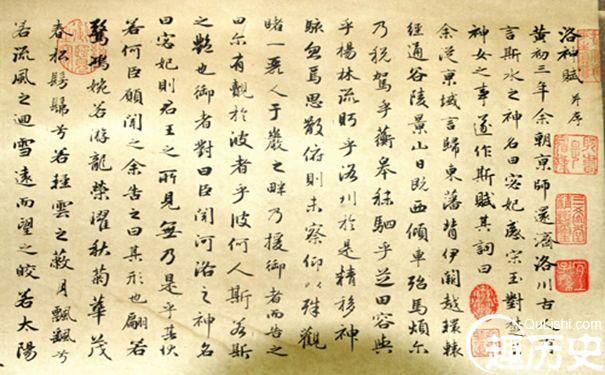 洛神賦 并序
黃初三年余朝京師還濟洛川古人有
言斯水之神名曰宓妃感宋玉對楚
神女之事遂作斯賦其詞曰
余從京域言歸東藩背伊闕越轘轅
經通谷陵景山日既西傾車殆馬煩尔
乃稅駕乎蘅皋秣駟乎芝田容與
乎楊林流眄乎洛川於是精移神
駭忽焉思散俯則未察仰以殊觀
睹一麗人于巖之畔乃援御者而告之
曰尔有覿於彼者乎彼何人斯若斯
之艷也御者對曰臣聞河洛之神名
曰宓妃則君王之所見無乃是乎其狀
若何臣願聞之余告之曰其形也翩若
驚鴻婉若游龍榮曜秋菊華茂
春松髣髴兮若輕雲之蔽月飄飄兮
若流風之迴雪遠而望之皎若太陽
Qulishi.com
趣历史